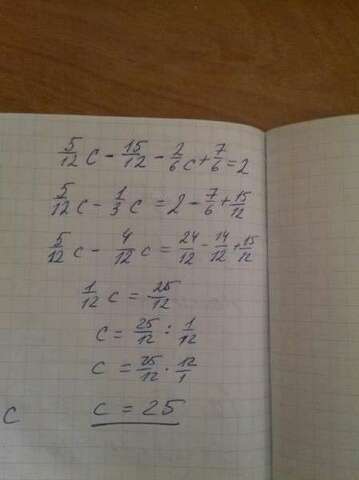 5/12 c - 15/12 - 2/6 c + 7/6 = 2
5/12 c - 1/3 c = 2 - 7/6 + 15/12
5/12 c - 4/12 c = 24/12 - 14/12 + 15/12
1/12 c = 25/12
c = 25/12 : 1/12
c = 25/12 · 12/1
c = 25
c